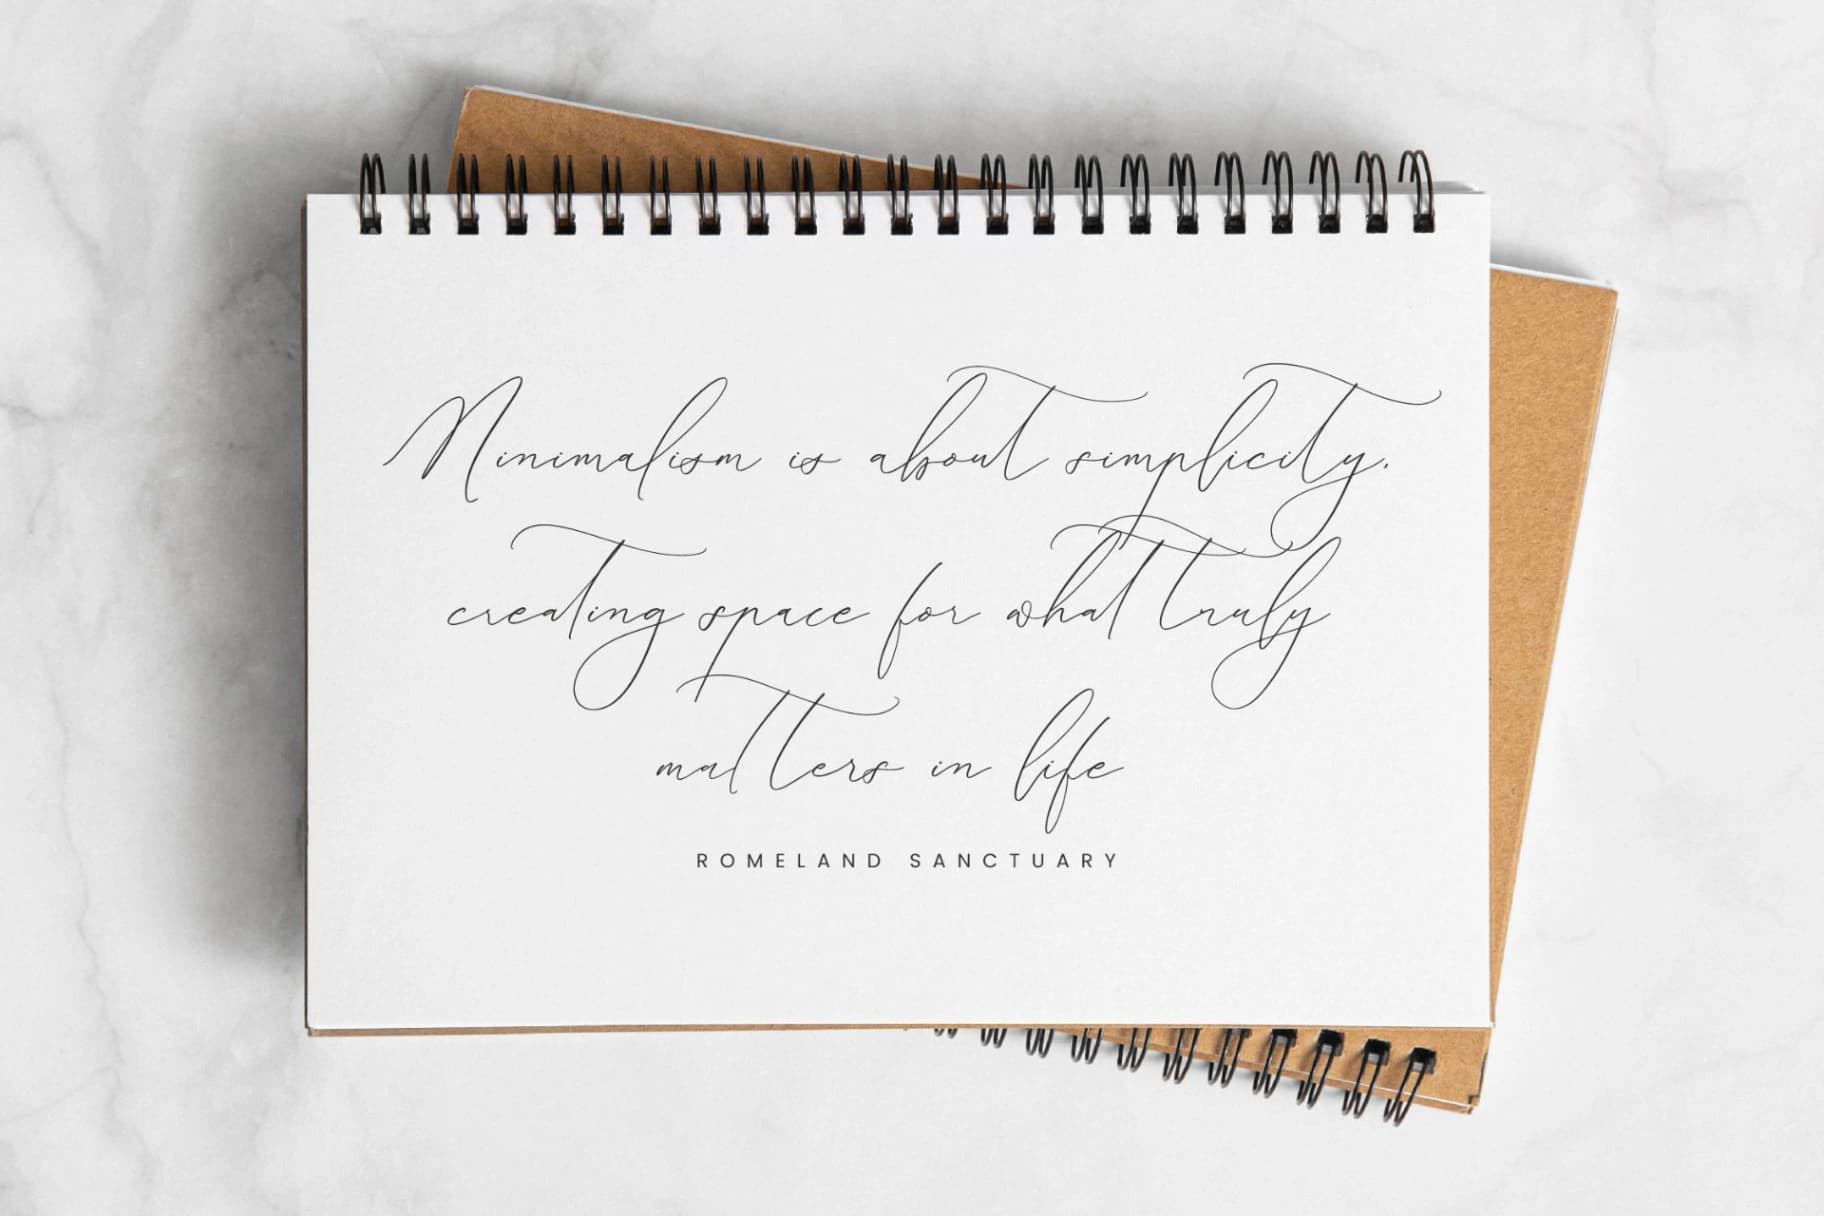 Minimalism is about simplicity,
creating space for what truly
matters in life
ROMELAND SANCTUARY